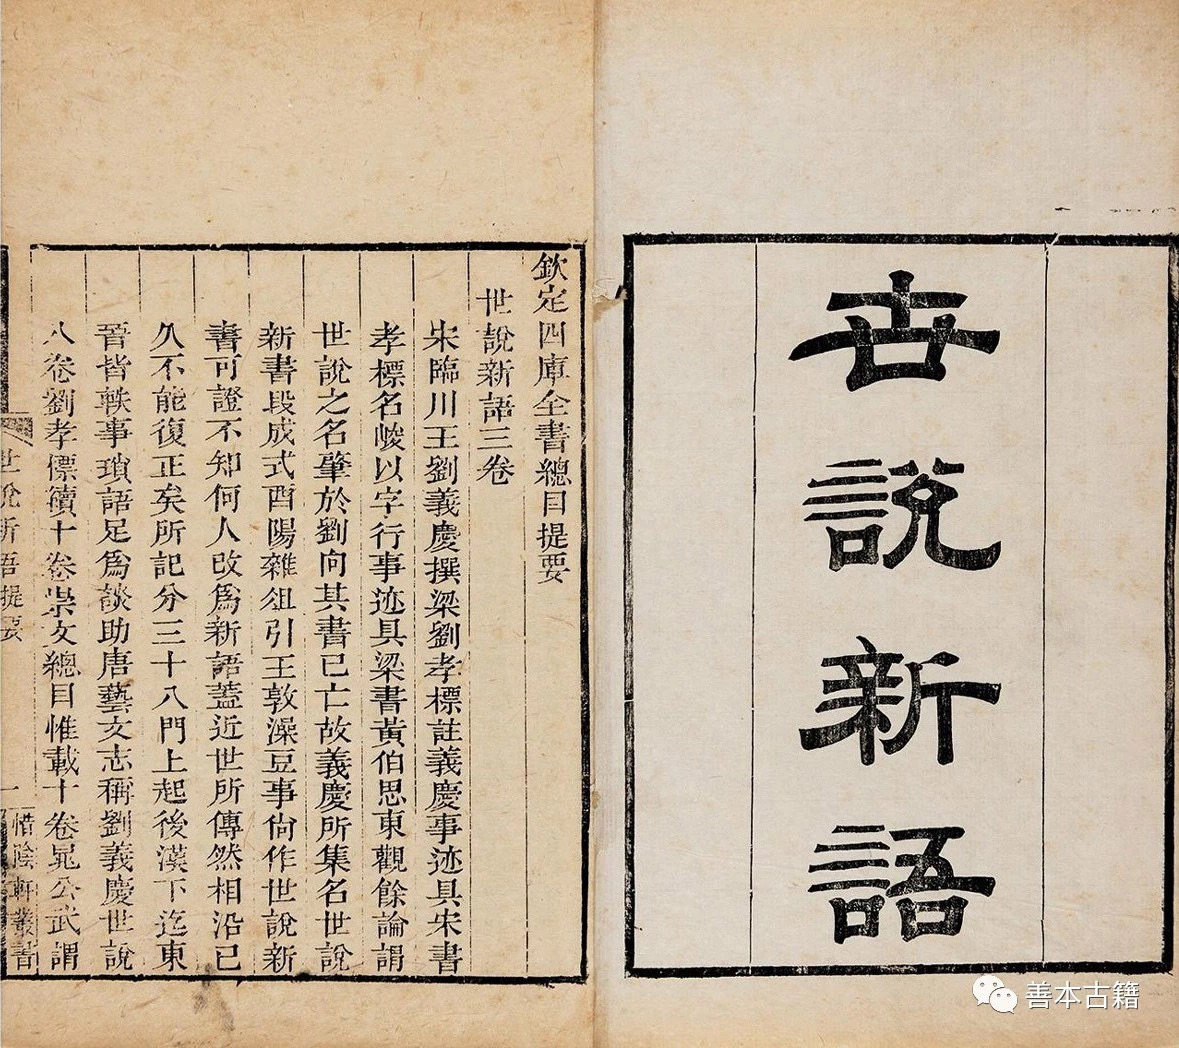 世說新語
欽定四庫全書總目提要
世說新語三卷
宋臨川王劉義慶撰梁劉孝標註義慶事迹具宋書
孝標名峻以字行事迹具梁書黃伯思東觀餘論謂
世說之名肇於劉向其書已亡故義慶所集名世說
新書段成式酉陽雜俎引王敦澡豆事尙作世說新
書可證不知何人改爲新語蓋近世所傳然相沿已
久不能復正矣所記分三十八門上起後漢下迄東
晉皆軼事瑣語足爲談助唐藝文志稱劉義慶世說
八卷劉孝標續十卷崇文總目惟載十卷晁公武謂
世說新語提要
一
惜陰軒叢書
善本古籍